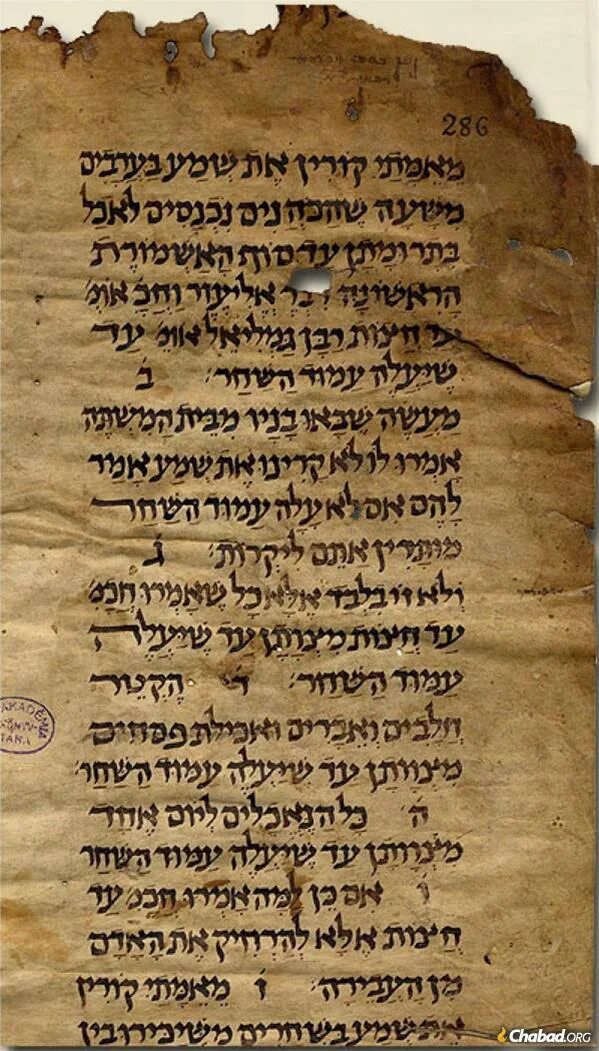 286
מאמתי קורין את שמע בערבים
משעה שהכהנים נכנסים לאכל
בתרומתן עד סוף האשמורת
הראשונה דבר אליעזר וחכ' אומ'
עד חצות רבן גמליאל אומ' עד
שיעלה עמוד השחר' ב'
מעשה שבאו בניו מבית המשתה
אמרו לו לא קרינו את שמע אמר
להם אם לא עלה עמוד השחר
מותרין אתם ליקרות' ג'
ולא זו בלבד אלא כל שאמרו חכמ'
עד חצות מצותן עד שיעלה
עמוד השחר' ד' הקטר
חלבים ואברים ואכילת פסחים
מיצוותן עד שיעלה עמוד השחר'
ה' כל הנאכלים ליום אחד
מיצוותן עד שיעלה עמוד השחר
ו' אם כן למה אמרו חכמ' עד
חצות אלא להרחיק את האדם
מן העבירה' ז' מאמתי קורין
את שמע בשחרים משיכירו בין
AKADÉMIA
KÖNYV-
TÁRA
Chabad.ORG